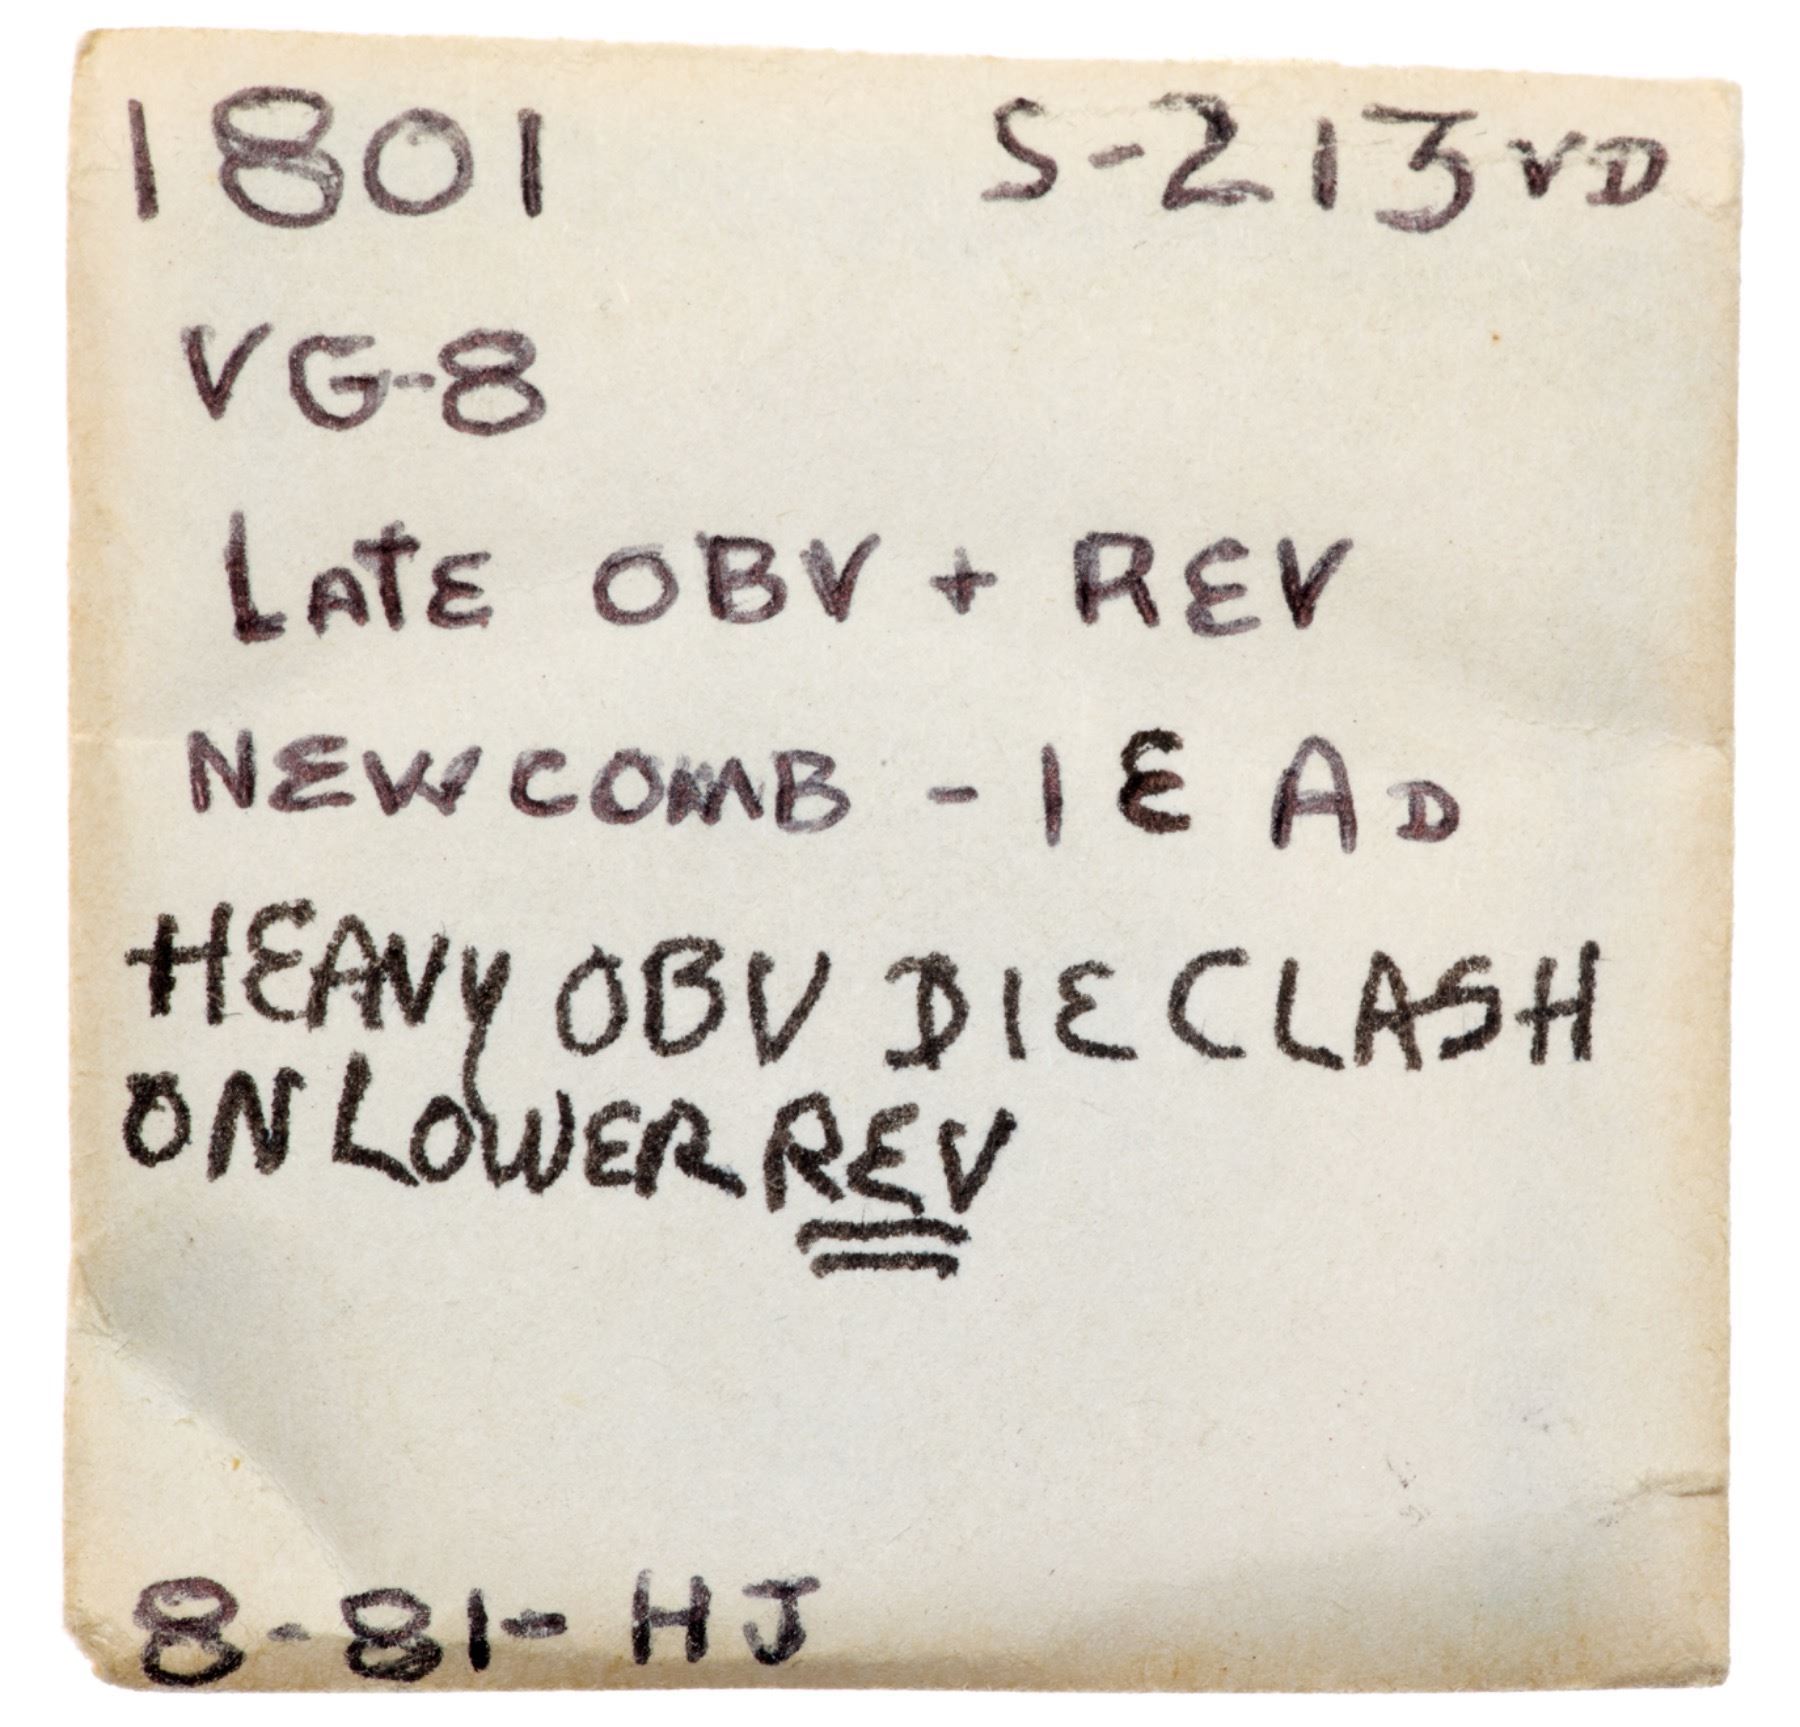 1801 S-213VD
VG-8
LATE OBV + REV
NEWCOMB - 1 E AD
HEAVY OBV DIE CLASH
ON LOWER REV
8-81- HJ